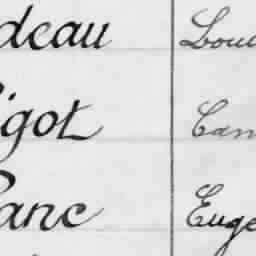 deau Loui
igot Cam
anc Euge